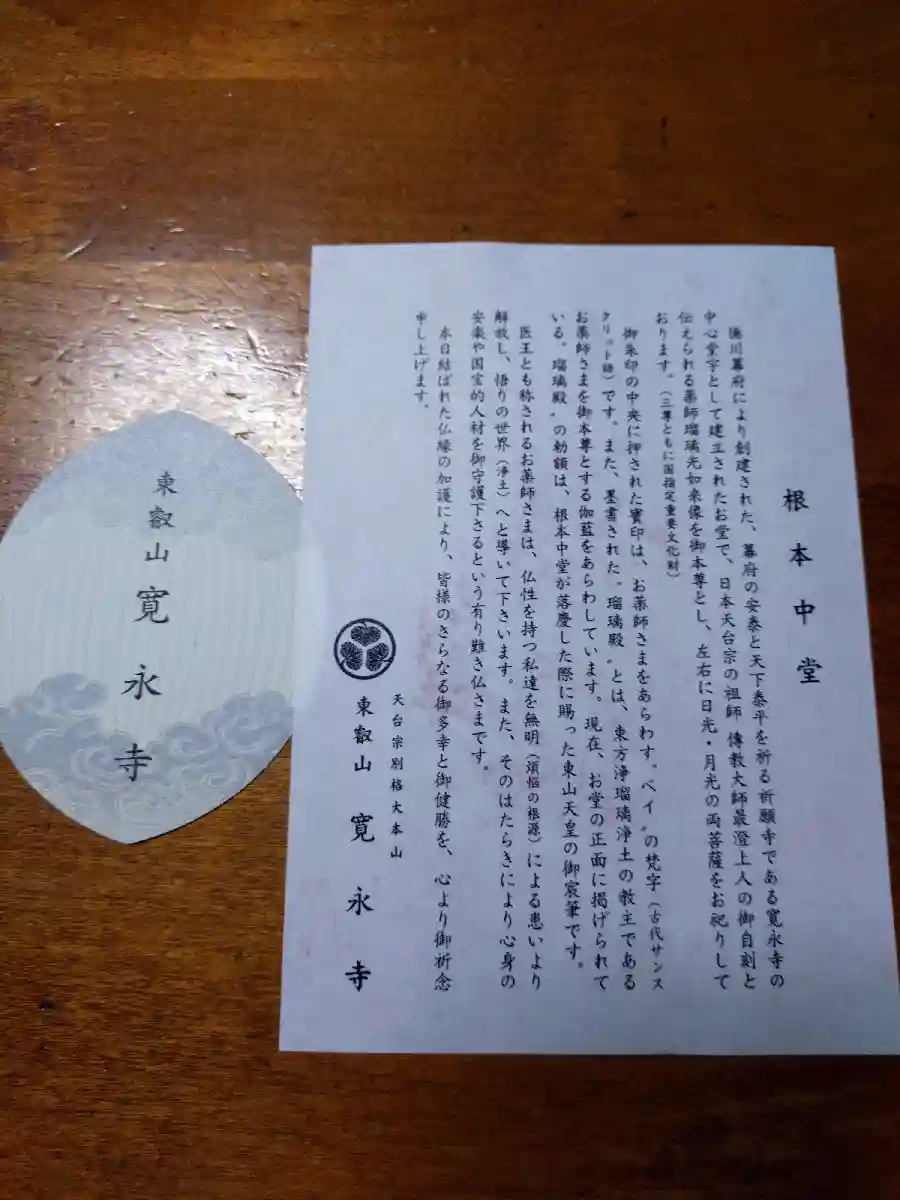 根本中堂
徳川幕府により創建された、幕府の安泰と天下泰平を祈る祈願寺である寛永寺の
中心堂宇として建立されたお堂で、日本天台宗の祖師 傳教大師最澄上人の御自刻と
伝えられる薬師瑠璃光如来像を御本尊とし、左右に日光・月光の両菩薩をお祀りして
おります。(三尊ともに国指定重要文化財)
御朱印の中央に押された寳印は、お薬師さまをあらわす〝ベイ〟の梵字(古代サンス
クリット語)です。また、墨書された〝瑠璃殿〟とは、東方浄瑠璃浄土の教主である
お薬師さまを御本尊とする伽藍をあらわしています。現在、お堂の正面に掲げられて
いる〝瑠璃殿〟の勅額は、根本中堂が落慶した際に賜った東山天皇の御宸筆です。
医王とも称されるお薬師さまは、仏性を持つ私達を無明(煩悩の根源)による患いより
解放し、悟りの世界(浄土)へと導いて下さいます。また、そのはたらきにより心身の
安楽や国宝的人材を御守護下さるという有り難き仏さまです。
本日結ばれた仏縁の加護により、皆様のさらなる御多幸と御健勝を、心より御祈念
申し上げます。
天台宗別格大本山
東叡山 寛永寺
東叡山寛永寺